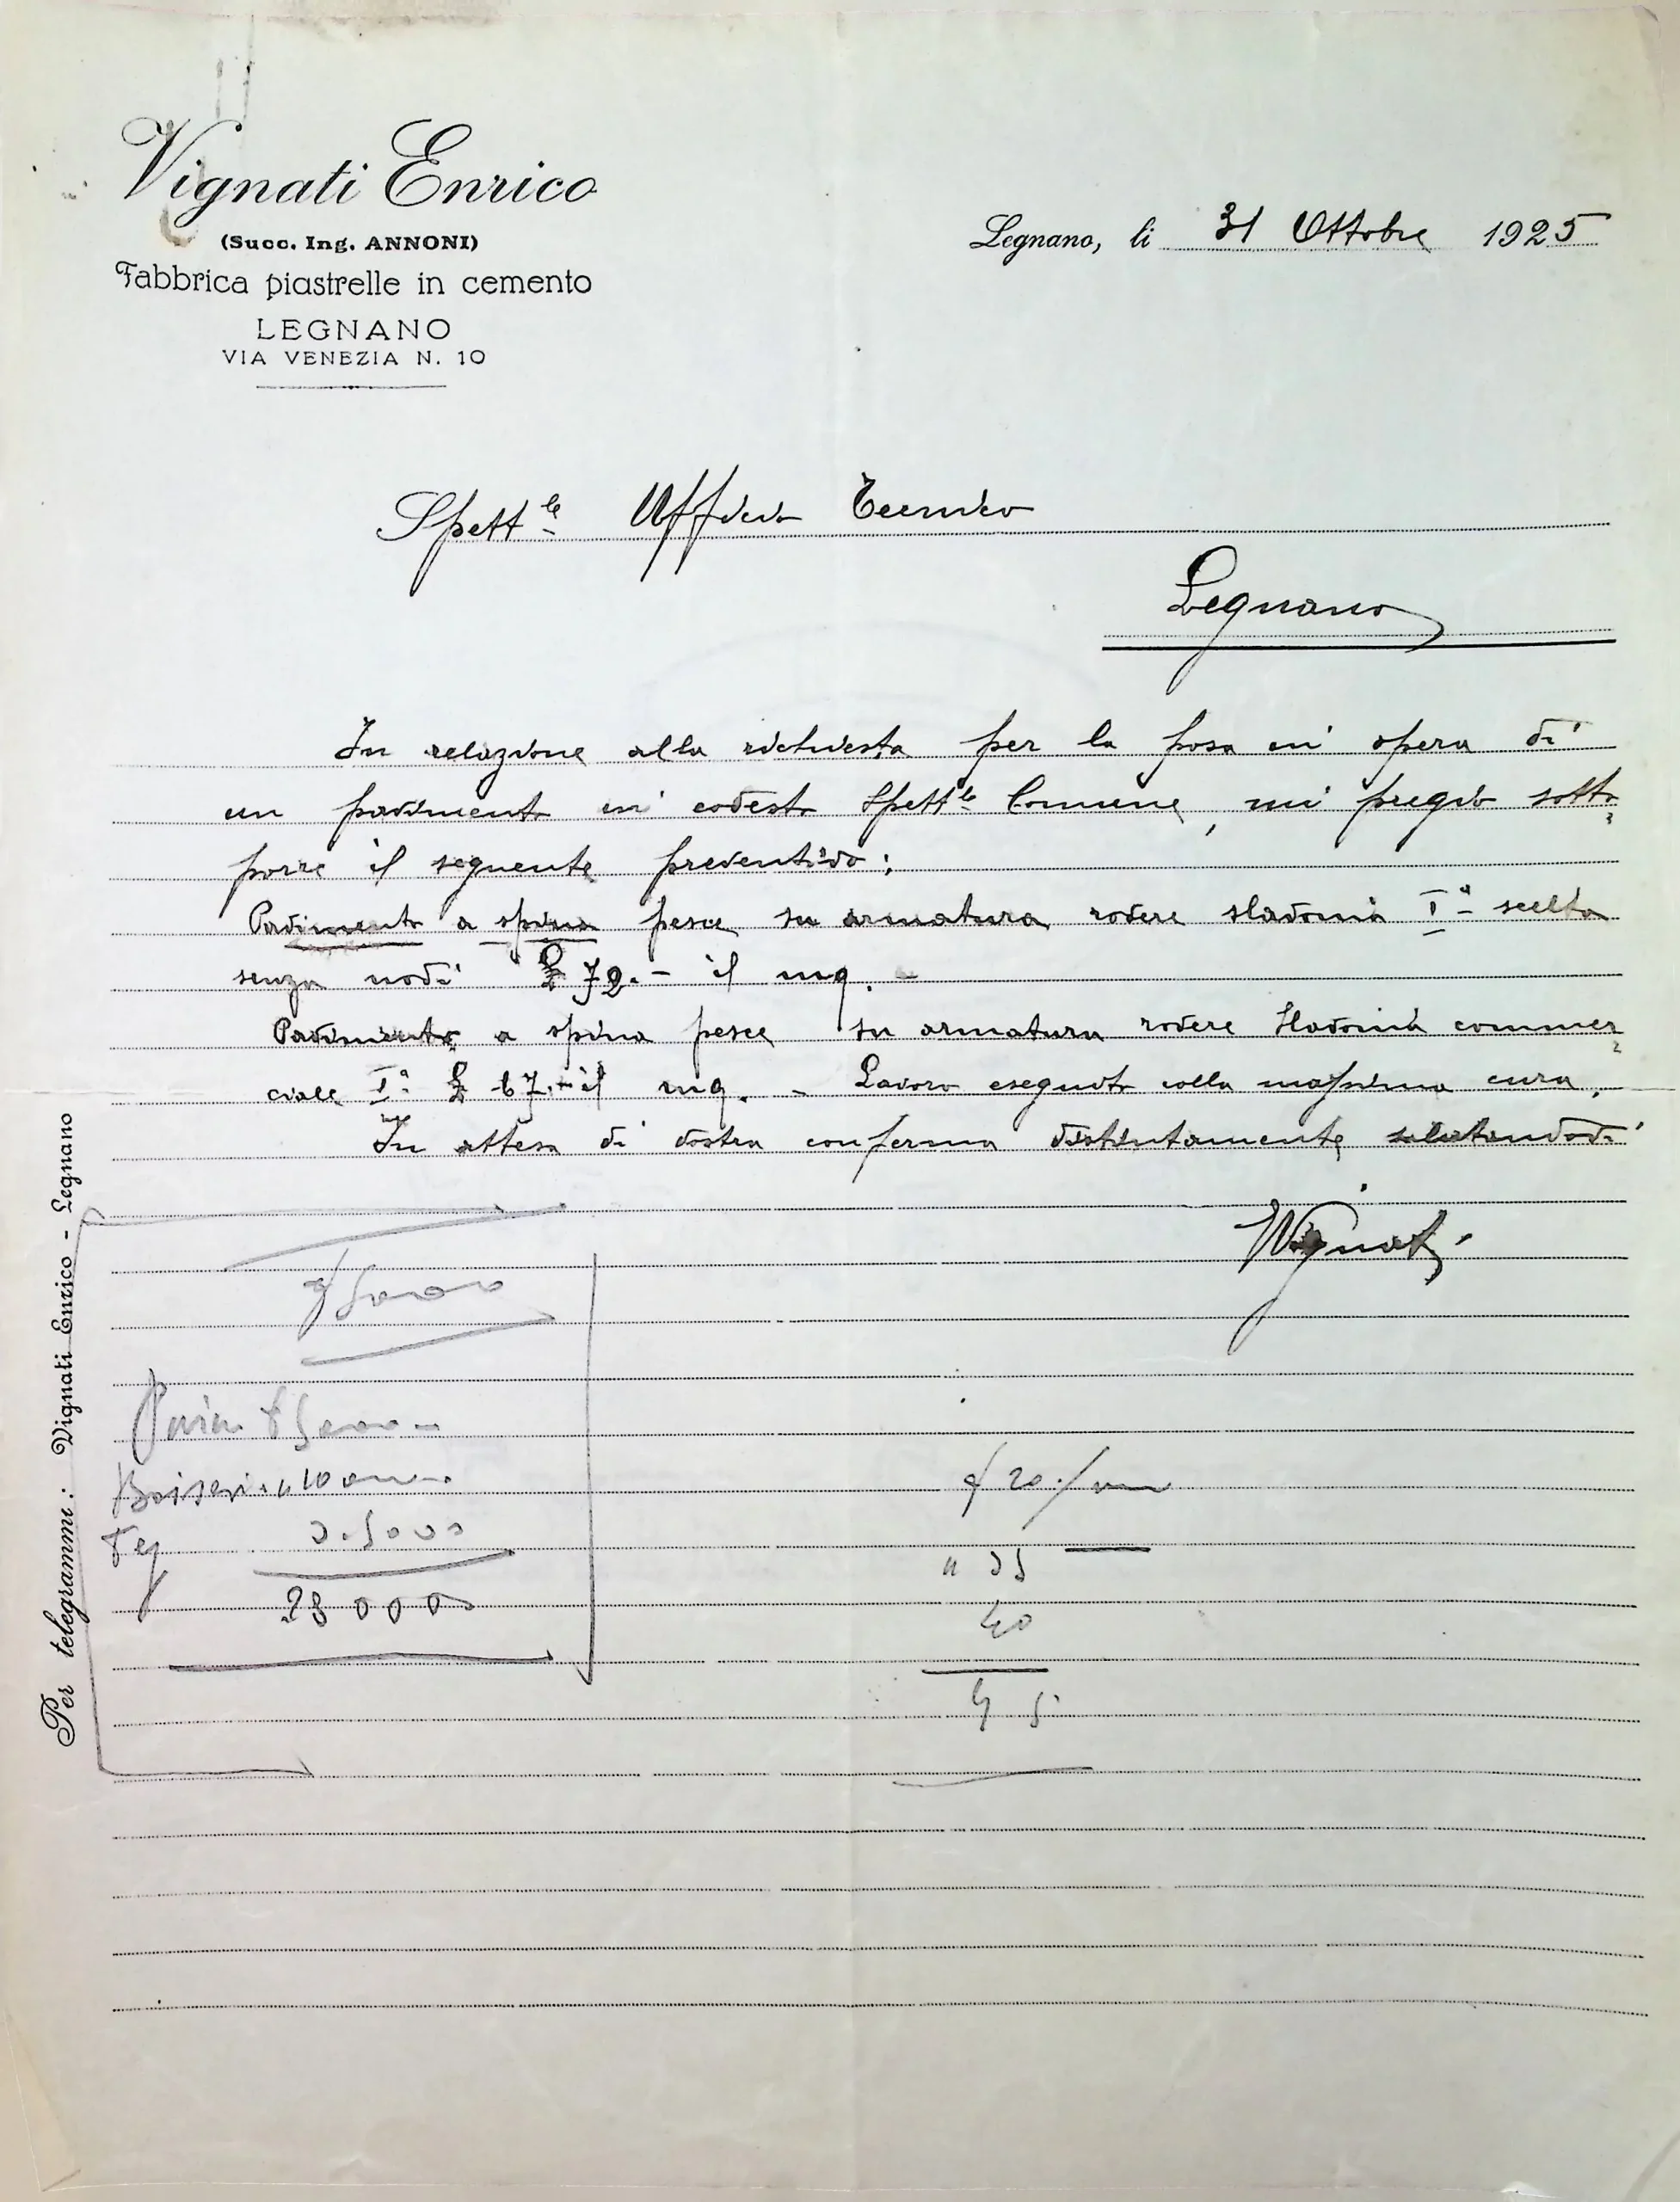 Vignati Enrico
(Succ. Ing. ANNONI)
Fabbrica piastrelle in cemento
LEGNANO
VIA VENEZIA N. 10
Legnano, li 31 Ottobre 1925
Spett.le Ufficio Tecnico
Legnano
In relazione alla richiesta per la posa in opera di
un pavimento in codesto Spett.le Comune, mi pregio sotto
porre il seguente preventivo:
Pavimento a spina pesce su armatura rovere slavonia Iª scelta
senza nodi £ 72.- il mq.
Pavimento a spina pesce su armatura rovere slavonia commer
ciale Iª £ 67.- il mq. - Lavoro eseguito colla massima cura.
In attesa di vostra conferma distintamente salutandovi
Vignati
28 000
40
Per telegrammi: Vignati Enrico - Legnano